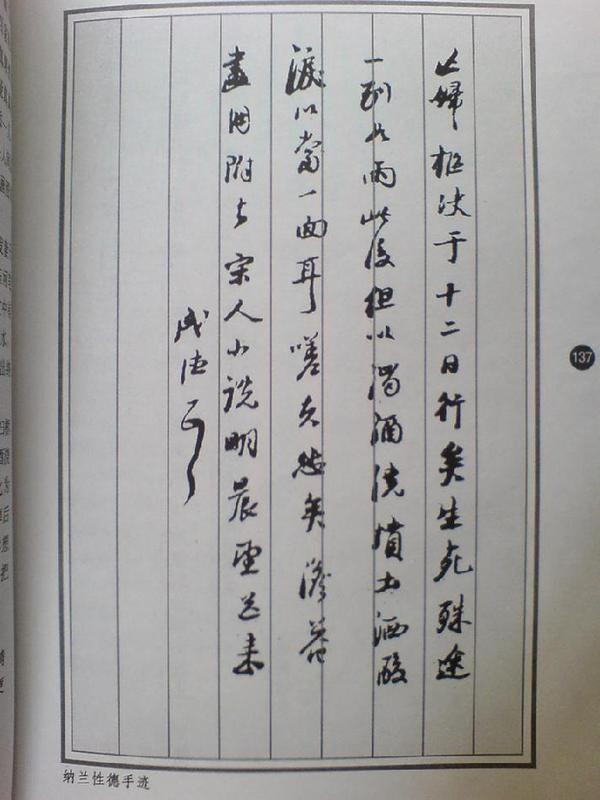 亡婦柩决于十二日行矣生死殊途
一别如雨此後但以濁酒澆墳土洒酸
淚以當一面耳嗟夫悲矣澹菴
畫册附去宋人小説明晨望来
成德
137
纳兰性德手迹